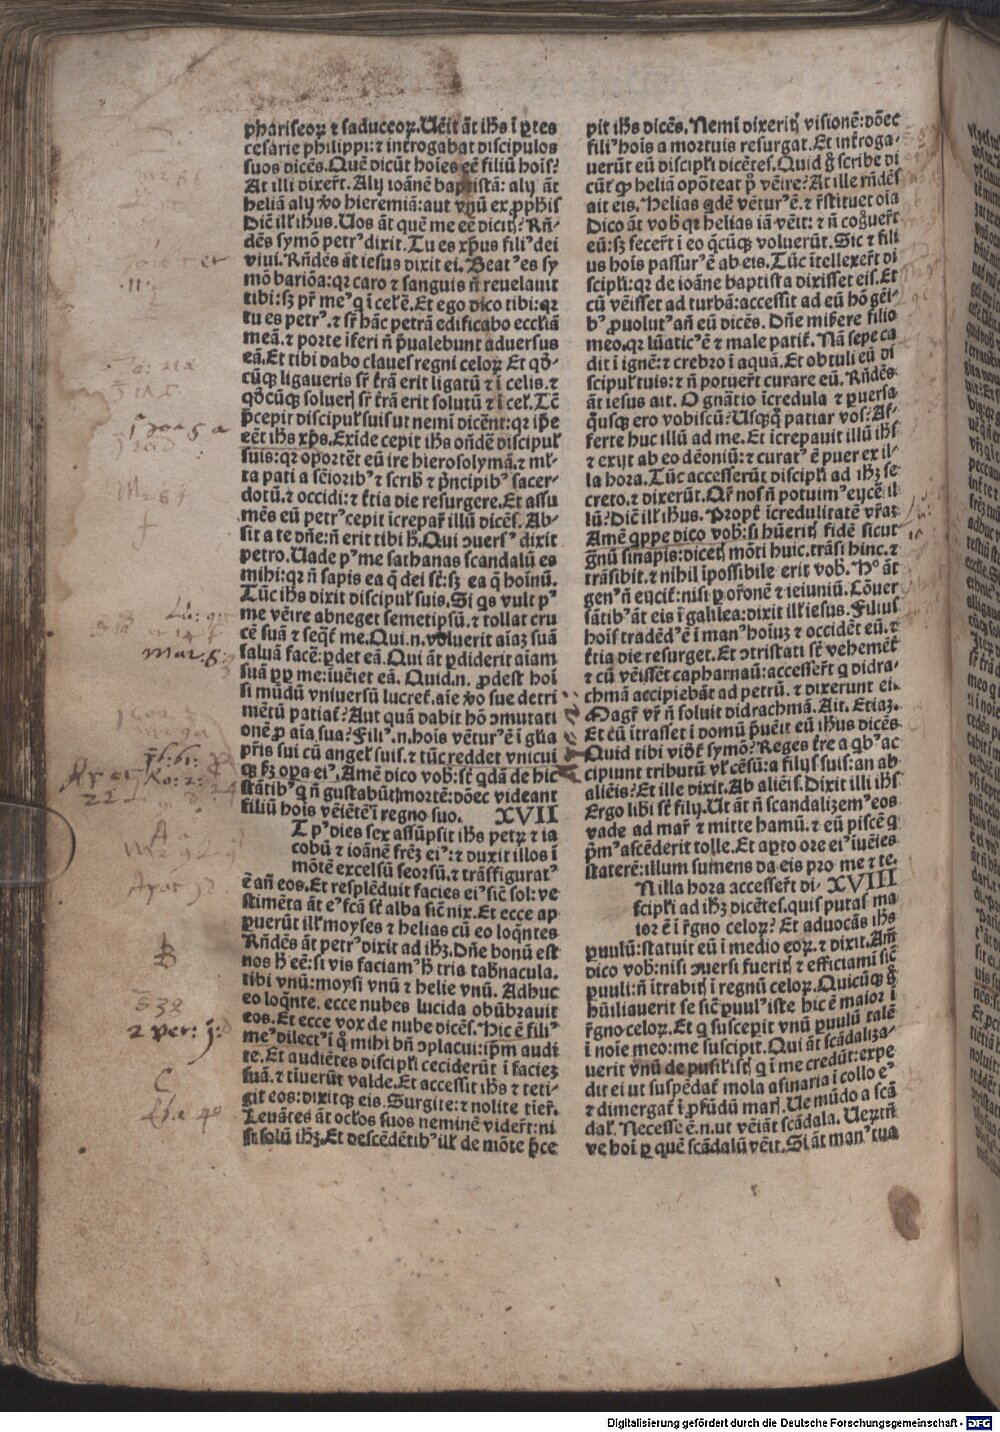 phariseoꝝ ⁊ saduceoꝝ. Uēit āt ih̄s ī ꝑtes
cesarie philippi: ⁊ interrogabat discipulos
suos dicēs. Quē dicūt hoīes eē filiū hoīs?
At illi dixer̄t. Alij ioānē baptistā: alij āt
heliā alij ꝟo hieremiā: aut vnū ex ꝓphīs
Dic̄ ill' ih̄us. Uos āt quē me eē diciꝭ? Rn̄-
dēs symō petrꝰ dixit. Tu es xp̄us filiꝰ dei
viui. Rn̄dēs āt iesus dixit ei. Beatꝰ es sy
mō bariōa: qꝛ caro ⁊ sanguis n̄ reuelauit
tibi: sꝫ pr̄ meꝰ q̄ ī cel' ē. Et ego dico tibi: qꝛ
tu es petrꝰ. ⁊ sr̄ hāc petrā edificabo eccl'iā
meā. ⁊ porte īferi n̄ p̄ualebunt aduersus
eā. Et tibi dabo claues regni celoꝝ Et qd̄-
cūqꝫ ligaueris sr̄ t̄rā erit ligatū ⁊ ī celis. ⁊
qd̄cūqꝫ solueꝭ sr̄ t̄rā erit solutū ⁊ ī cel'. Tc̄
p̄cepit discipul' suis ut nemi dicēnt: qꝛ ip̄e
eēt ih̄s xp̄s. Exīde cepit ih̄s on̄dē discipul'
suis: qꝛ oportēt eū ire hierosolymā. ⁊ ml'-
ta pati a sēioribꝰ ⁊ scrib̄ ⁊ p̄ncipibꝰ sacer-
dotū. ⁊ occidi: ⁊ t̄tia die resurgere. Et assu
mēs eū petrꝰ cepit īcrepar̄ illū dicēs. Ab-
sit a te dn̄e: n̄ erit tibi h̄. Qui ↄuersꝰ dixit
petro. Uade pꝰ me sathanas scandalū es
mihi: qꝛ n̄ sapis ea q̄ dei st̄: sꝫ ea q̄ hoīnū.
Tūc ih̄s dixit discipul' suis. Si qs vult pꝰ
me vēire abneget semetipsū. ⁊ tollat cru
cē suā ⁊ seqt̄ me. Qui .n. voluerit aīaꝫ suā
saluā facē: ꝑdet eā. Qui āt ꝑdiderit aīam
suā ꝓp me: īueīet eā. Quid .n. ꝓdest hoī
si mūdū vniuersū lucret̄. aīe ꝟo sue detri
mētū patiat̄? Aut quā dabit hō ↄmutati
onē ꝓ aīa sua? Filiꝰ .n. hoīs vēturꝰ ē ī gl'ia
pr̄is sui cū angel' suis. ⁊ tūc reddet vnicui
qꝫ sꝫ oꝑa eiꝰ. Amē dico vob̄: st̄ qdā de hic
stātibꝰ q̄ n̄ gustabūt mortē: dōec videant
filiū hoīs vēiētē ī regno suo. XVII
T pꝰ dies sex assūpsit ih̄s petꝝ ⁊ ia
cobū ⁊ ioānē frēꝫ eiꝰ: ⁊ duxit illos ī
mōtē excelsū seorsū. ⁊ trāsfiguratꝰ
ē an̄ eos. Et resplēduit facies eiꝰ sic̄ sol: ve
stimēta āt eꝰ fcā st̄ alba sic̄ nix. Et ecce ap
ꝑuerūt ill' moyses ⁊ helias cū eo loqn̄tes
Rn̄dēs āt petrꝰ dixit ad ih̄ꝫ. Dn̄e bonū est
nos h̄ eē: si vis faciamꝰ h̄ tria tab̄nacula.
tibi vnū: moysi vnū ⁊ helie vnū. Adhuc
eo loqn̄te. ecce nubes lucida obūbrauit
eos. Et ecce vox de nube dicēs. Hic ē filiꝰ
meꝰ dilectꝰ ī q̊ mihi bn̄ ↄplacui: ip̄m audi
te. Et audiētes discipl'i ceciderūt ī facieꝫ
suā. ⁊ tiuerūt valde. Et accessit ih̄s ⁊ teti-
git eos: dixitqꝫ eis. Surgite: ⁊ nolite tier̄.
Leuātes āt ocl'os suos neminē vider̄t: ni
si solū ih̄ꝫ. Et descēdētibꝰ ill' de mōte p̄ce
pit ih̄s dicēs. Nemī dixeriꝭ visionē: dōec
filiꝰ hoīs a mortuis resurgat. Et int̄roga-
uerūt eū discipl'i dicētes. Quid g̊ scribe di
cūt qꝫ heliā opōteat p̄ vēire? At ille rn̄dēs
ait eis. Helias qdē vēturꝰ ē. ⁊ r̄stituet oīa
Dico āt vob̄ qꝛ helias iā vēit: ⁊ n̄ cog̊uer̄t
eū: sꝫ fecer̄t ī eo q̄cūqꝫ voluerūt. Sic ⁊ fili
us hoīs passurꝰ ē ab eis. Tūc ītellexer̄t di
scipl'i: qꝛ de ioāne baptista dixisset eis. Et
cū vēisset ad turbā: accessit ad eū hō gēi-
bꝰ ꝓuolutꝰ an̄ eū dicēs. Dn̄e miserere filio
meo. qꝛ lūaticꝰ ē ⁊ male patit̄. Nā sepe ca
dit ī ignē: ⁊ crebro ī aquā. Et obtuli eū di
scipul' tuis: ⁊ n̄ potuer̄t curare eū. Rn̄dēs
āt iesus ait. O gn̄atio īcredula ⁊ ꝑuersa
q̄usqꝫ ero vobiscū? Usqꝫq̊ patiar vos? Af-
ferte huc illū ad me. Et īcrepauit illū ih̄s
⁊ exijt ab eo dēoniū: ⁊ curatꝰ ē puer ex il-
la hora. Tūc accesserūt discipl'i ad ih̄ꝫ se
creto. ⁊ dixerūt. Qr̄ nos n̄ potuimꝰ eijcē il
lū? Dic̄ ill' ih̄us. Propt̄ īcredulitatē vr̄aꝫ
Amē qppe dico vob̄: si hūeriꝭ fidē sicut
gn̄ū sinapis: diceꝭ mōti huic. trāsi hinc. ⁊
trāsibit. ⁊ nihil īpossibile erit vob̄. Hº āt
genꝰ n̄ eijcit̄: nisi ꝑ or̄onē ⁊ ieiuniū. Cōuer
sātibꝰ āt eis ī galilea: dixit ill' iesus. Filius
hoīs tradēdꝰ ē ī manꝰ hoīuꝫ ⁊ occidēt eū. ⁊
t̄tia die resurget. Et ↄtristati st̄ vehemēt̄
⁊ cū vēissēt capharnaū: accesser̄t q̄ didra-
chmā accipiebāt ad petrū. ⁊ dixerunt ei.
Magr̄ vr̄ n̄ soluit didrachmā. Ait. Etiaꝫ.
Et cū ītrasset ī domū p̄uēit eū ih̄us dicēs
Quid tibi vid̄t symō? Reges t̄re a qbꝰ ac
cipiunt tributū vl' cēsū: a filijs suis: an ab
aliēis? Et ille dixit. Ab aliēis. Dixit illi ih̄s
Ergo libi st̄ filij. Ut āt n̄ scandalizemꝰ eos
vade ad mar̄ ⁊ mitte hamū. ⁊ eū piscē q̄
p̄mꝰ ascēderit tolle. Et aꝑto ore eiꝰ īueīes
staterē: illum sumens da eis pro me ⁊ te.
N illa hora accesser̄t di- XVIII
scipl'i ad ih̄ꝫ dicētes. quis putas ma
ior ē ī r̄gno celoꝝ? Et aduocās ih̄s
ꝑuulū: statuit eū ī medio eoꝝ. ⁊ dixit. Am̄
dico vob̄: nisi ↄuersi fueriꝭ ⁊ efficiamī sic̄
ꝑuuli: n̄ ītrabiꝭ ī regnū celoꝝ. Quicūqꝫ g̊
hūiliauerit se sic̄ ꝑuulꝰ iste hic ē maior ī
r̄gno celoꝝ. Et q̄ susceꝑit vnū ꝑuulū talē
ī noīe meo: me suscipit. Qui āt scādaliza-
uerit vnū de pusill' istꝭ q̄ ī me credūt: expe
dit ei ut suspēdat̄ mola asinaria ī collo eꝰ
⁊ dimergat̄ ī ꝓfūdū marꝭ. Ue mūdo a scā
dal'. Necesse ē .n. ut vēiāt scādala. Ueꝝtn̄
ve hoī ꝑ quē scādalū vēit. Si āt manꝰ tua
Mar. 8.
22
B
2 per: j:
C
Digitalisierung gefördert durch die Deutsche Forschungsgemeinschaft - DFG